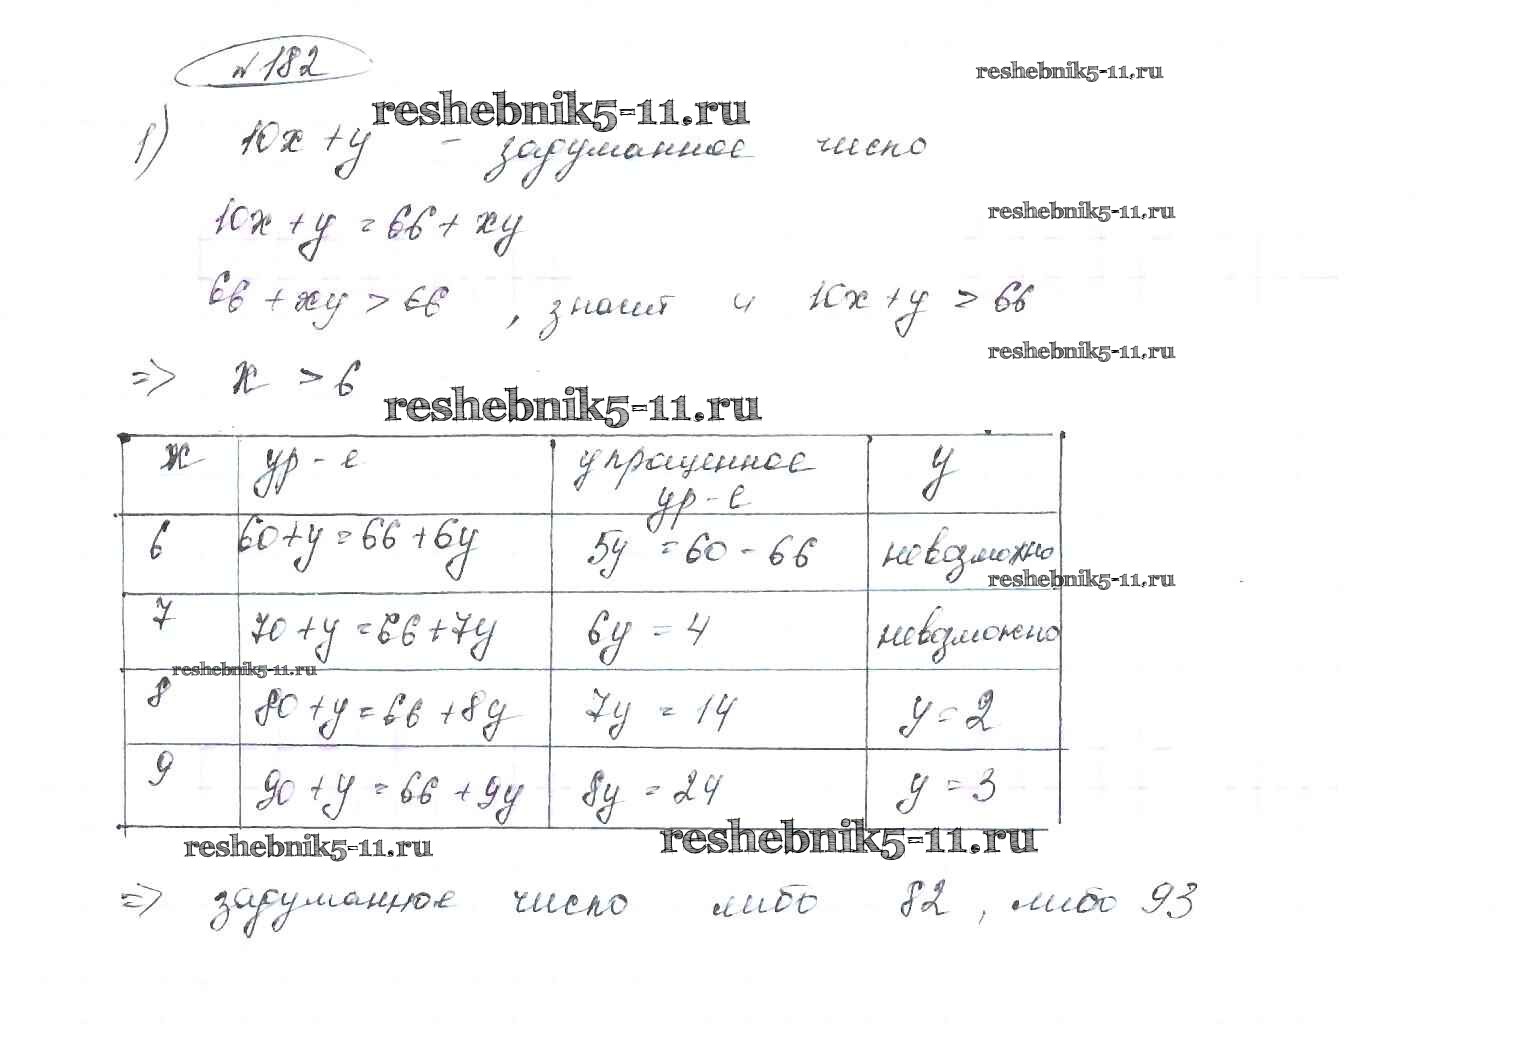 №182
reshebnik5-11.ru
reshebnik5-11.ru
1) 10x + y - задуманное число
10x + y = 66 + xy
reshebnik5-11.ru
66 + xy > 66 , значит и 10x + y > 66
reshebnik5-11.ru
=> x > 6
reshebnik5-11.ru
x ур-е упрощенное ур-е y
6 60+y=66+6y 5y = 60 - 66 невозможно
reshebnik5-11.ru
7 70+y=66+7y 6y = 4 невозможно
reshebnik5-11.ru
8 80+y=66+8y 7y = 14 y=2
9 90+y=66+9y 8y = 24 y = 3
reshebnik5-11.ru
reshebnik5-11.ru
=> задуманное число либо 82, либо 93